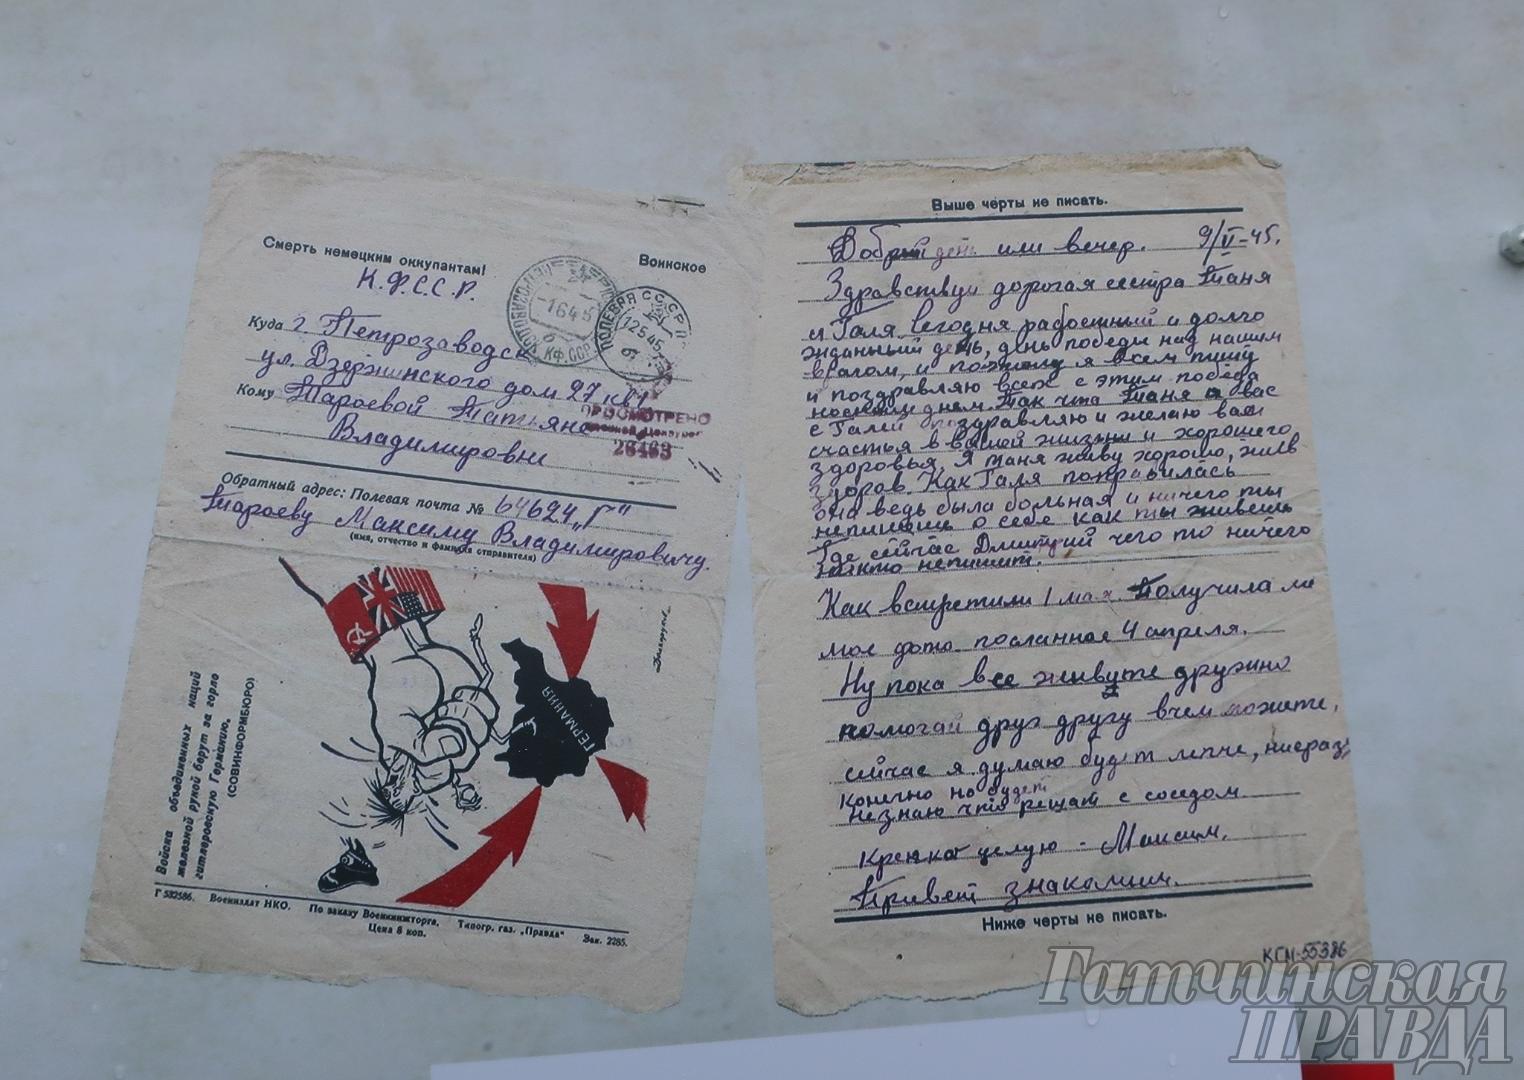 Смерть немецким оккупантам!
Воинское
К.Ф.С.С.Р.
Куда г. Петрозаводск
ул. Дзержинского дом 27 кв 1
Кому Тароевой Татьяне
Владимировни
ПРОСМОТРЕНО
Военной Цензурой
26463
ПОЛЕВАЯ
12545
-1645
КФ.ССР
Обратный адрес: Полевая почта № 64624 „Г"
Тароеву Максиму Владимировичу.
(имя, отчество и фамилия отправителя)
ГЕРМАНИЯ
Войска объединенных наций
железной рукой берут за горло
гитлеровскую Германию.
(СОВИНФОРМБЮРО)
Г 532586. Воениздат НКО. По заказу Военкнижторга. Типогр. газ. „Правда" Зак. 2285.
Цена 8 коп.
Выше черты не писать.
Добрый день или вечер. 9/V-45.
Здравствуй дорогая сестра Таня
и Галя. Сегодня радостный и долго
жданный день, день победы над нашим
врагом, и поэтому я всем пишу
и поздравляю всех с этим победа
носным днем. Так что Таня я вас
с Галей поздравляю и желаю вам
счастья в вашей жизни и хорошего
здоровья. Я Таня живу хорошо, жив
здоров. Как Галя поправилась
она ведь была больная и ничего ты
непишешь о себе как ты живешь
Где сейчас Дмитрий чего то ничего
никто непишет.
Как встретили 1 мая. Получила ли
мое фото посланное 4 апреля.
Ну пока все живите дружно
помогай друг другу вчем можете,
сейчас я думаю будет легче, ниеразу
конечно но будет
незнаю что решат с соседом
Крепко целую - Максим.
Привет знакомым.
Ниже черты не писать.
КГМ-55386
Гатчинская
ПРАВДА